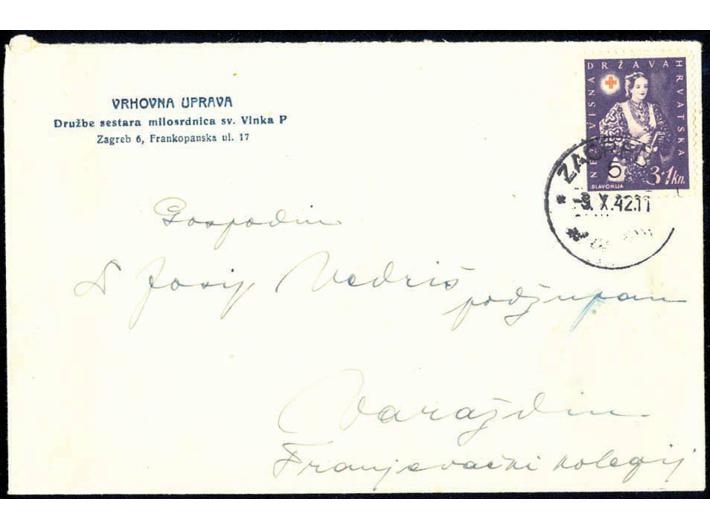 VRHOVNA UPRAVA
Družbe sestara milosrdnica sv. Vinka P
Zagreb 6, Frankopanska ul. 17
NEZAVISNA DRŽAVA HRVATSKA
SLAVONIJA
3+1 kn.
ZAGREB
6
-9. X. 42.11
Gospodin
Dr Josip Vedriš
podžupan
Varaždin
Franjevački kolegij